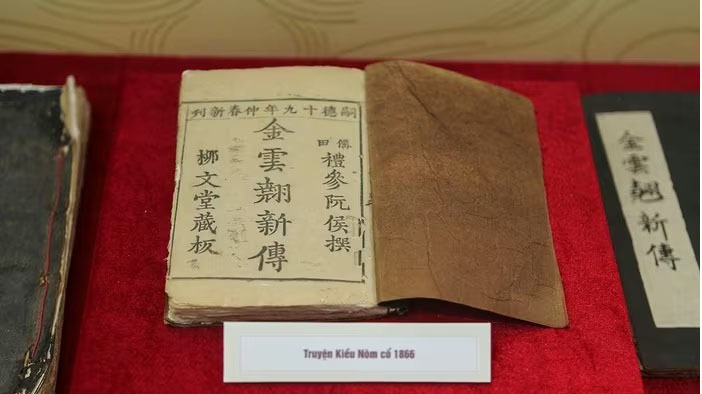 嗣德十九年仲春新刊
僊田
禮參阮侯撰
金雲翹新傳
柳文堂藏板
金雲翹新傳
Truyện Kiều Nôm cổ 1866